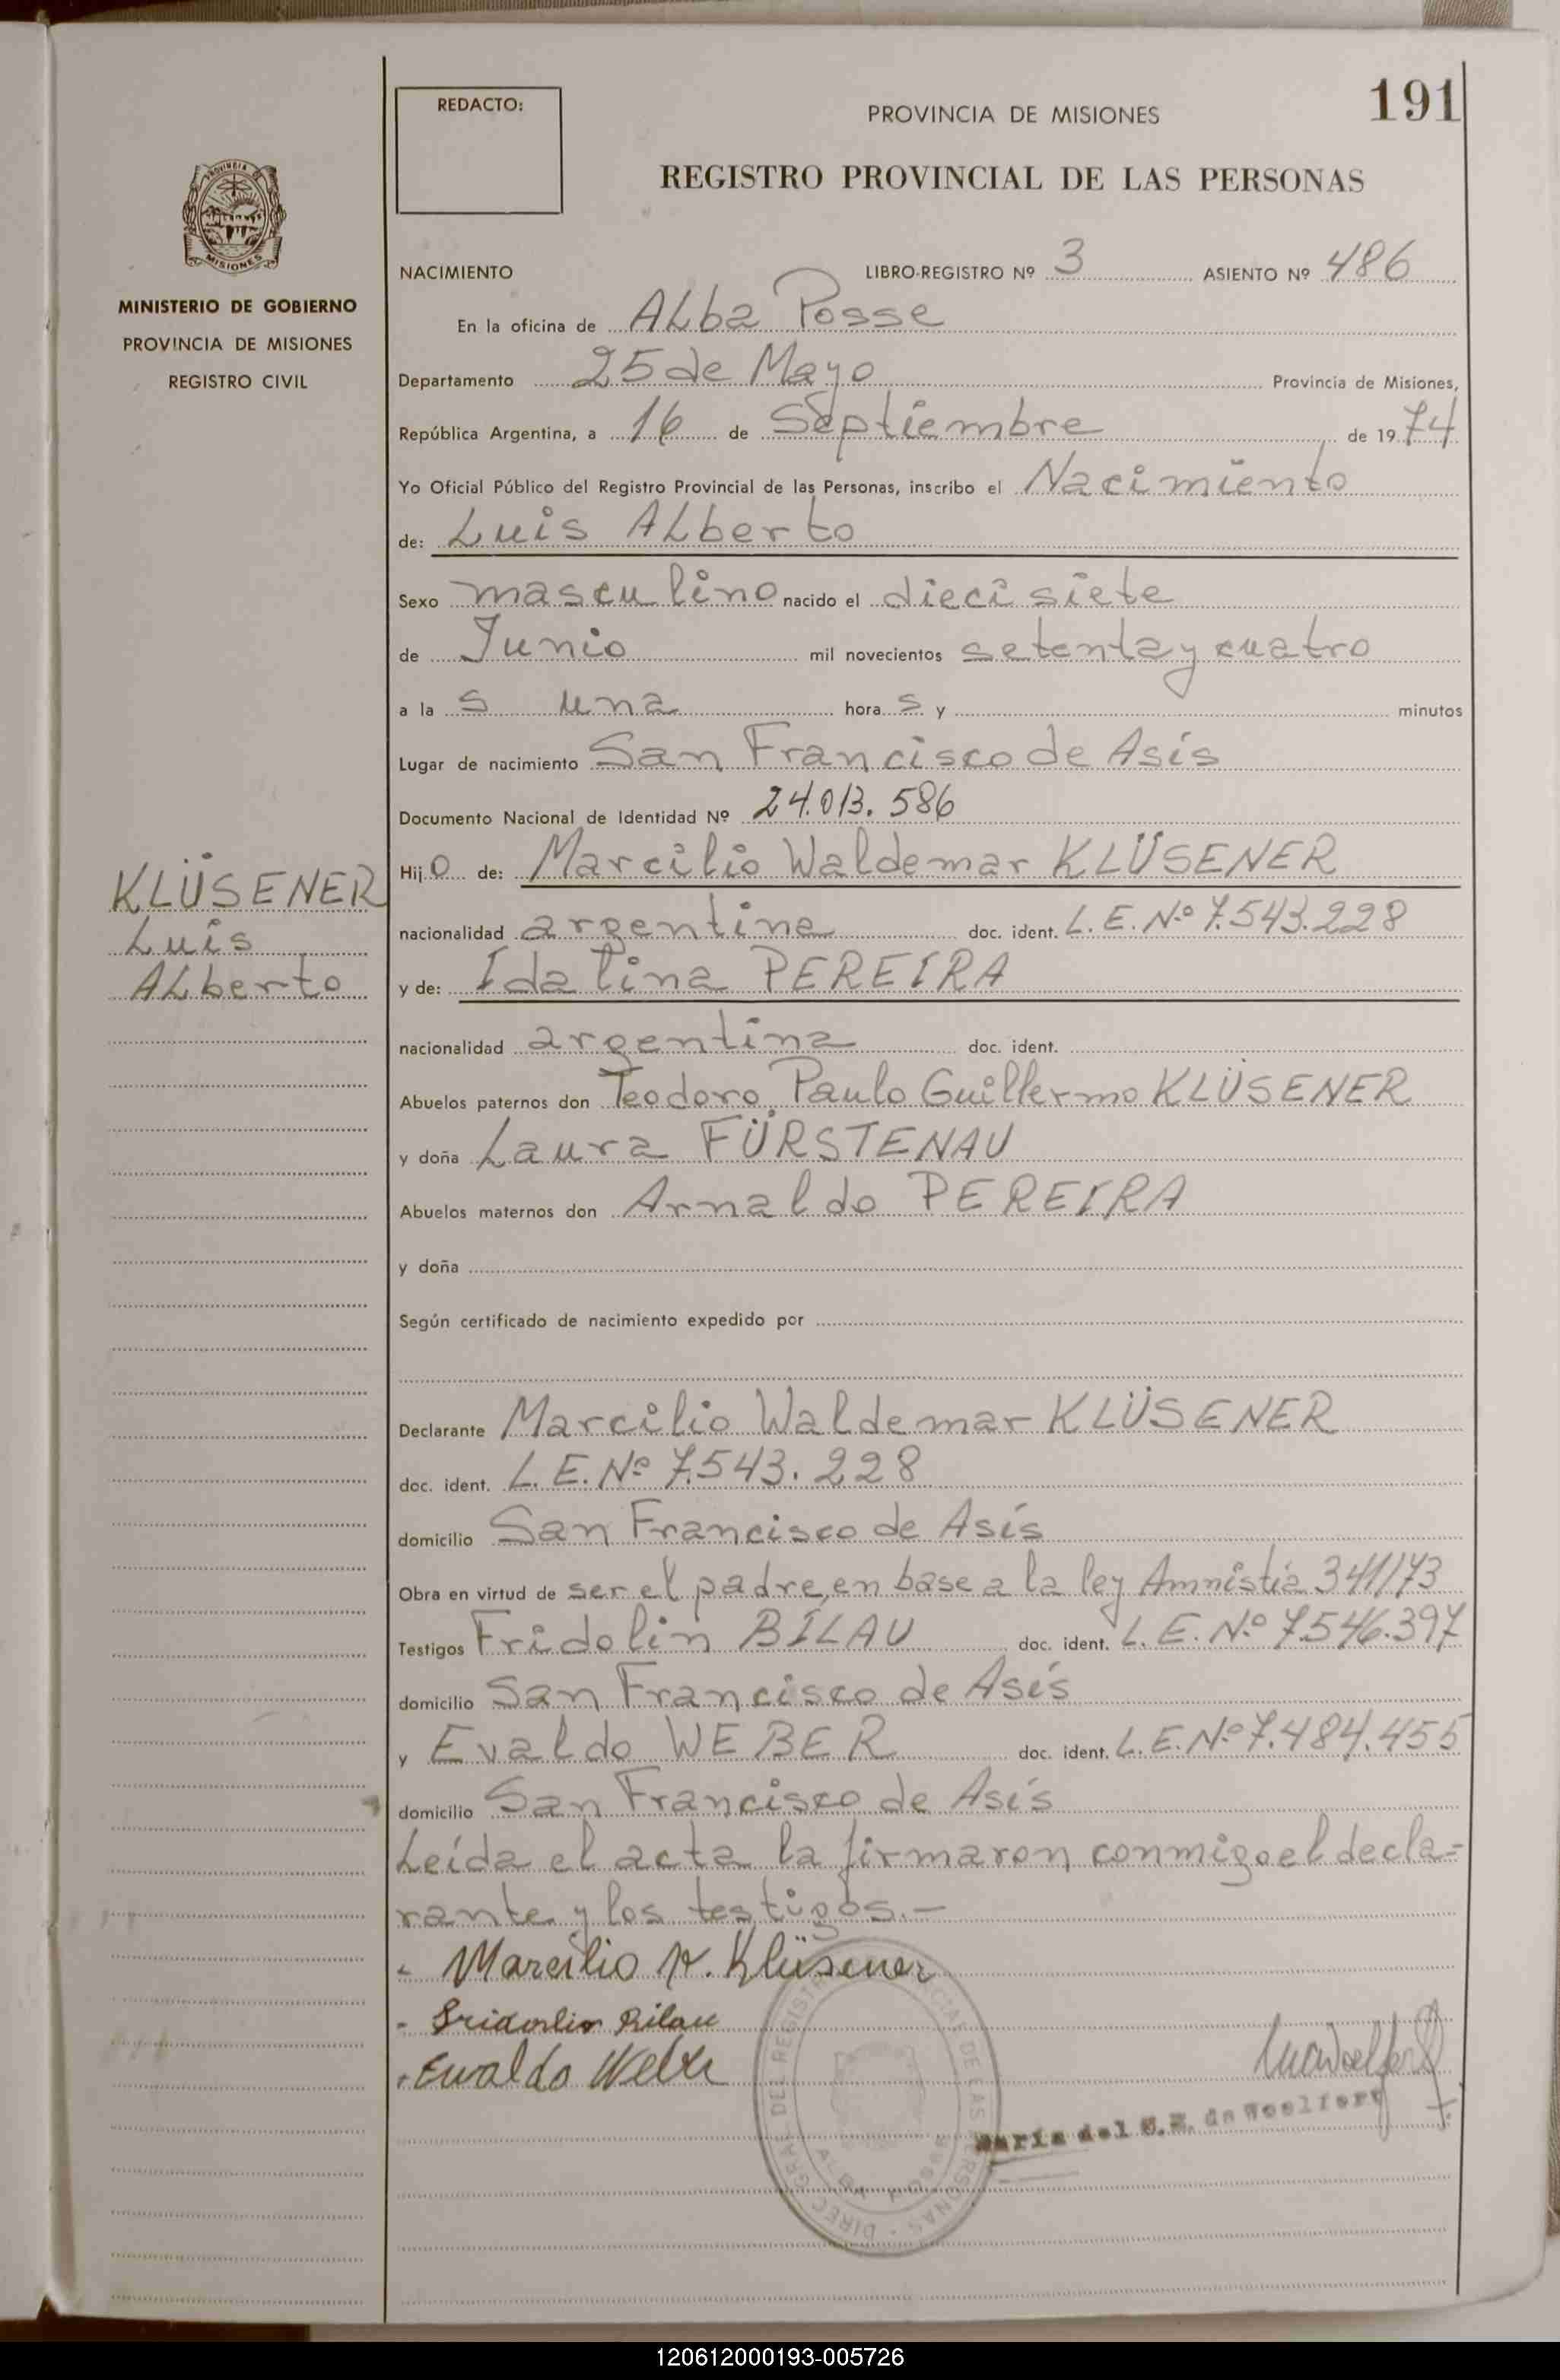 191
REDACTO:
PROVINCIA DE MISIONES
REGISTRO PROVINCIAL DE LAS PERSONAS
PROVINCIA DE
MISIONES
MINISTERIO DE GOBIERNO
PROVINCIA DE MISIONES
REGISTRO CIVIL
NACIMIENTO LIBRO-REGISTRO Nº 3 ASIENTO Nº 486
En la oficina de ALba Posse
Departamento 25 de Mayo Provincia de Misiones,
República Argentina, a 16 de Septiembre de 1974
Yo Oficial Público del Registro Provincial de las Personas, inscribo el Nacimiento
de: Luis ALberto
Sexo masculino nacido el dieci siete
de Junio mil novecientos setenta y cuatro
a la s una hora s y minutos
Lugar de nacimiento San Francisco de Asís
Documento Nacional de Identidad Nº 24.013.586
KLÜSENER
Luis
ALberto
Hijo de: Marcilio Waldemar KLÜSENER
nacionalidad argentina doc. ident. L.E.Nº 7.543.228
y de: Idalina PEREIRA
nacionalidad argentina doc. ident.
Abuelos paternos don Teodoro Paulo Guillermo KLÜSENER
y doña Laura FÜRSTENAU
Abuelos maternos don Arnaldo PEREIRA
y doña
Según certificado de nacimiento expedido por
Declarante Marcilio Waldemar KLÜSENER
doc. ident. L.E.Nº 7.543.228
domicilio San Francisco de Asís
Obra en virtud de ser el padre, en base a la ley Amnistía 3411/73
Testigos Fridolin BILAU doc. ident. L.E.Nº 7.546.397
domicilio San Francisco de Asís
y Evaldo WEBER doc. ident. L.E.Nº 7.484.455
domicilio San Francisco de Asís
Leída el acta la firmaron conmigo el decla=
rante y los testigos.-
- Marcilio W. Klüsener
- Fridolin Bilau
- Ewaldo Weber
DIREC. GRAL. DEL REGISTRO PROVINCIAL DE LAS PERSONAS
ALBA POSSE
María del de Woelfert
120612000193-005726